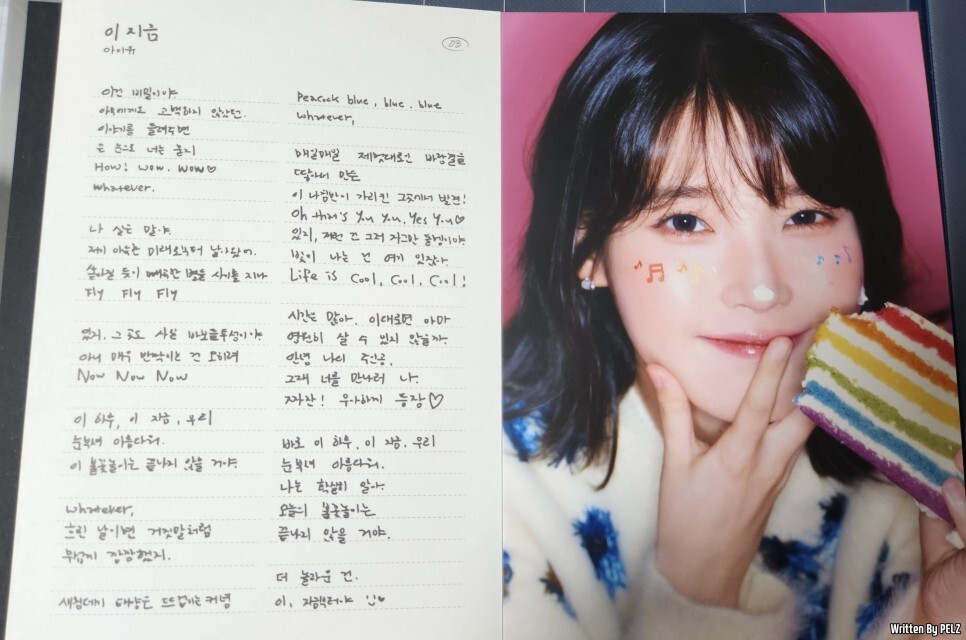 이 지금
아이유
03
이건 비밀이야.
아무에게도 고백하지 않았던.
이야기를 들려주면
큰 눈으로 너는 묻지
How! wow. wow♡
whatever.
나 실은 말야.
저기 아득한 미래로부터 날아왔어.
쏟아질 듯이 빼곡한 별들 사이를 지나
Fly Fly Fly
있지. 그곳도 사실 바보들투성이야.
아니 매우 반짝이는 건 오히려
Now Now Now
이 하루, 이 지금, 우리
눈부셔 아름다워.
이 불꽃놀이는 끝나지 않을 거야
whatever,
흐린 날이면 거짓말처럼
무섭게 깜깜했지.
새침데기 태양은 뜨겁기는커녕
Peacock blue, blue, blue
whatever,
매일매일 제멋대로인 바람결을
땋아서 만든
이 나침반이 가리킨 그곳에서 발견!
Oh that's You You, Yes You♡
있지, 저건 그저 자그만 돌멩이야
빛이 나는 건 여기 있잖아.
Life is Cool, Cool, Cool!
시간은 많아. 이대로면 아마
영원히 살 수 있지 않을까.
안녕 나의 주인공,
그래 너를 만나러 나.
짜잔! 우아하게 등장♡
바로 이 하루, 이 지금, 우리
눈부셔 아름다워.
나는 확실히 알아.
오늘의 불꽃놀이는
끝나지 않을 거야.
더 놀라운 건.
이, 지금부터야
Written By PELZ